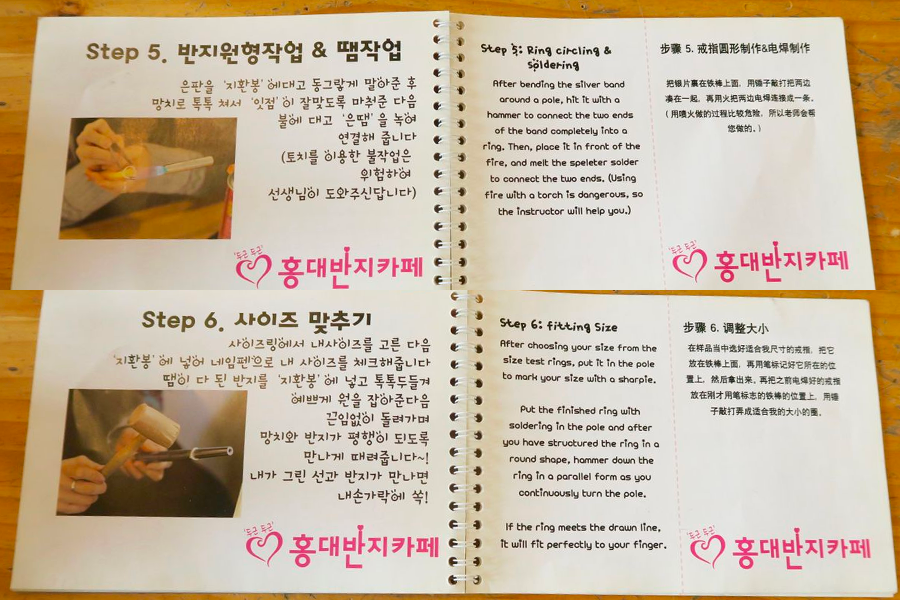 Step 5. 반지원형작업 & 땜작업
은판을 '지환봉'에대고 동그랗게 말아준 후
망치로 톡톡 쳐서 '잇점'이 잘맞도록 마춰준 다음
불에 대고 '은땜'을 녹여
연결해 줍니다
(토치를 이용한 불작업은
위험하여
선생님이 도와주신답니다)
'두근 두근'
홍대반지카페
Step 5: Ring circling &
Spldering
After bending the silver band
around a pole, hit it with a
hammer to connect the two ends
of the band completely into a
ring. Then, place it in front of the
fire, and melt the speleter solder
to connect the two ends. (Using
fire with a torch is dangerous, so
the instructor will help you.)
步骤 5. 戒指圆形制作&电焊制作
把银片裹在铁棒上面, 用锤子敲打把两边
凑在一起, 再用火把两边电焊连接成一条。
( 用喷火做的过程比较危险, 所以老师会帮
您做的。)
'두근 두근'
홍대반지카페
Step 6. 사이즈 맞추기
사이즈링에서 내사이즈를 고른 다음
'지환봉'에 넣어 네임펜으로 내 사이즈를 체크해줍니다
땜이 다 된 반지를 '지환봉'에 넣고 톡톡두들겨
예쁘게 원을 잡아준다음
끈임없이 돌려가며
망치와 반지가 평행이 되도록
만나게 때려줍니다~!
내가 그린 선과 반지가 만나면
내손가락에 쏙!
'두근 두근'
홍대반지카페
Step 6: fitting Size
After choosing your size from the
size test rings, put it in the pole
to mark your size with a sharpie.
Put the finished ring with
soldering in the pole and after
you have structured the ring in a
round shape, hammer down the
ring in a parallel form as you
continuously turn the pole.
If the ring meets the drawn line,
it will fit perfectly to your finger.
步骤 6. 调整大小
在样品当中选好适合我尺寸的戒指, 把它
放在铁棒上面, 再用笔标记好它所在的位
置上, 然后拿出来, 再把之前电焊好的戒指
放在刚才用笔标志的铁棒的位置上, 用锤
子敲打弄成适合我的大小的圈。
'두근 두근'
홍대반지카페